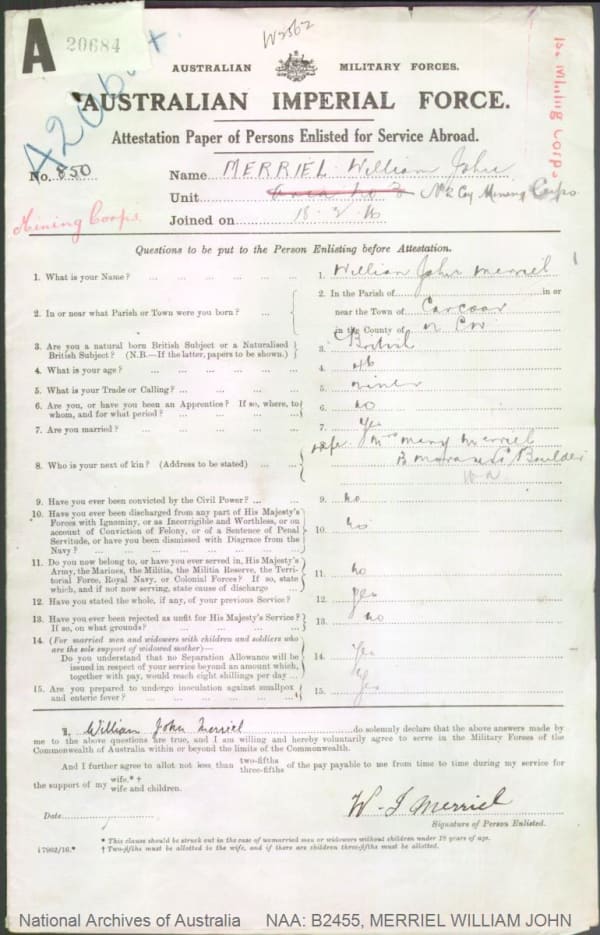 W2562
A 20684
AUSTRALIAN MILITARY FORCES.
AUSTRALIAN IMPERIAL FORCE.
Attestation Paper of Persons Enlisted for Service Abroad.
No. 850
Name MERRIEL William John
Unit No 2 Coy Mining Corps
Joined on 18.2.16
Mining Corps.
Mining Corps
Questions to be put to the Person Enlisting before Attestation.
1. What is your Name? 1. William John Merriel
2. In or near what Parish or Town were you born? 2. In the Parish of in or
near the Town of Carcoar
in the County of
3. Are you a natural born British Subject or a Naturalised
British Subject? (N.B.—If the latter, papers to be shown.) 3. British
4. What is your age? 4.
5. What is your Trade or Calling? 5. miner
6. Are you, or have you been an Apprentice? If so, where, to
whom, and for what period? 6. no
7. Are you married? 7. Yes
8. Who is your next of kin? (Address to be stated) wife Mrs Mary Merriel
St Boulder
WA
9. Have you ever been convicted by the Civil Power? 9. no
10. Have you ever been discharged from any part of His Majesty's
Forces with Ignominy, or as Incorrigible and Worthless, or on
account of Conviction of Felony, or of a Sentence of Penal
Servitude, or have you been dismissed with Disgrace from the
Navy? 10. no
11. Do you now belong to, or have you ever served in, His Majesty's
Army, the Marines, the Militia, the Militia Reserve, the Terri-
torial Force, Royal Navy, or Colonial Forces? If so, state
which, and if not now serving, state cause of discharge 11. no
12. Have you stated the whole, if any, of your previous Service? 12. yes
13. Have you ever been rejected as unfit for His Majesty's Service?
If so, on what grounds? 13. no
14. (For married men and widowers with children and soldiers who
are the sole support of widowed mother)—
Do you understand that no Separation Allowance will be
issued in respect of your service beyond an amount which,
together with pay, would reach eight shillings per day 14. Yes
15. Are you prepared to undergo inoculation against smallpox
and enteric fever? 15. Yes
I, William John Merriel do solemnly declare that the above answers made by
me to the above questions are true, and I am willing and hereby voluntarily agree to serve in the Military Forces of the
Commonwealth of Australia within or beyond the limits of the Commonwealth.
And I further agree to allot not less than two-fifths three-fifths of the pay payable to me from time to time during my service for
the support of my wife.* † wife and children.
Date
W. J Merriel
Signature of Person Enlisted.
* This clause should be struck out in the case of unmarried men or widowers without children under 18 years of age.
† Two-fifths must be allotted to the wife, and if there are children three-fifths must be allotted.
17902/16.*
National Archives of Australia NAA: B2455, MERRIEL WILLIAM JOHN